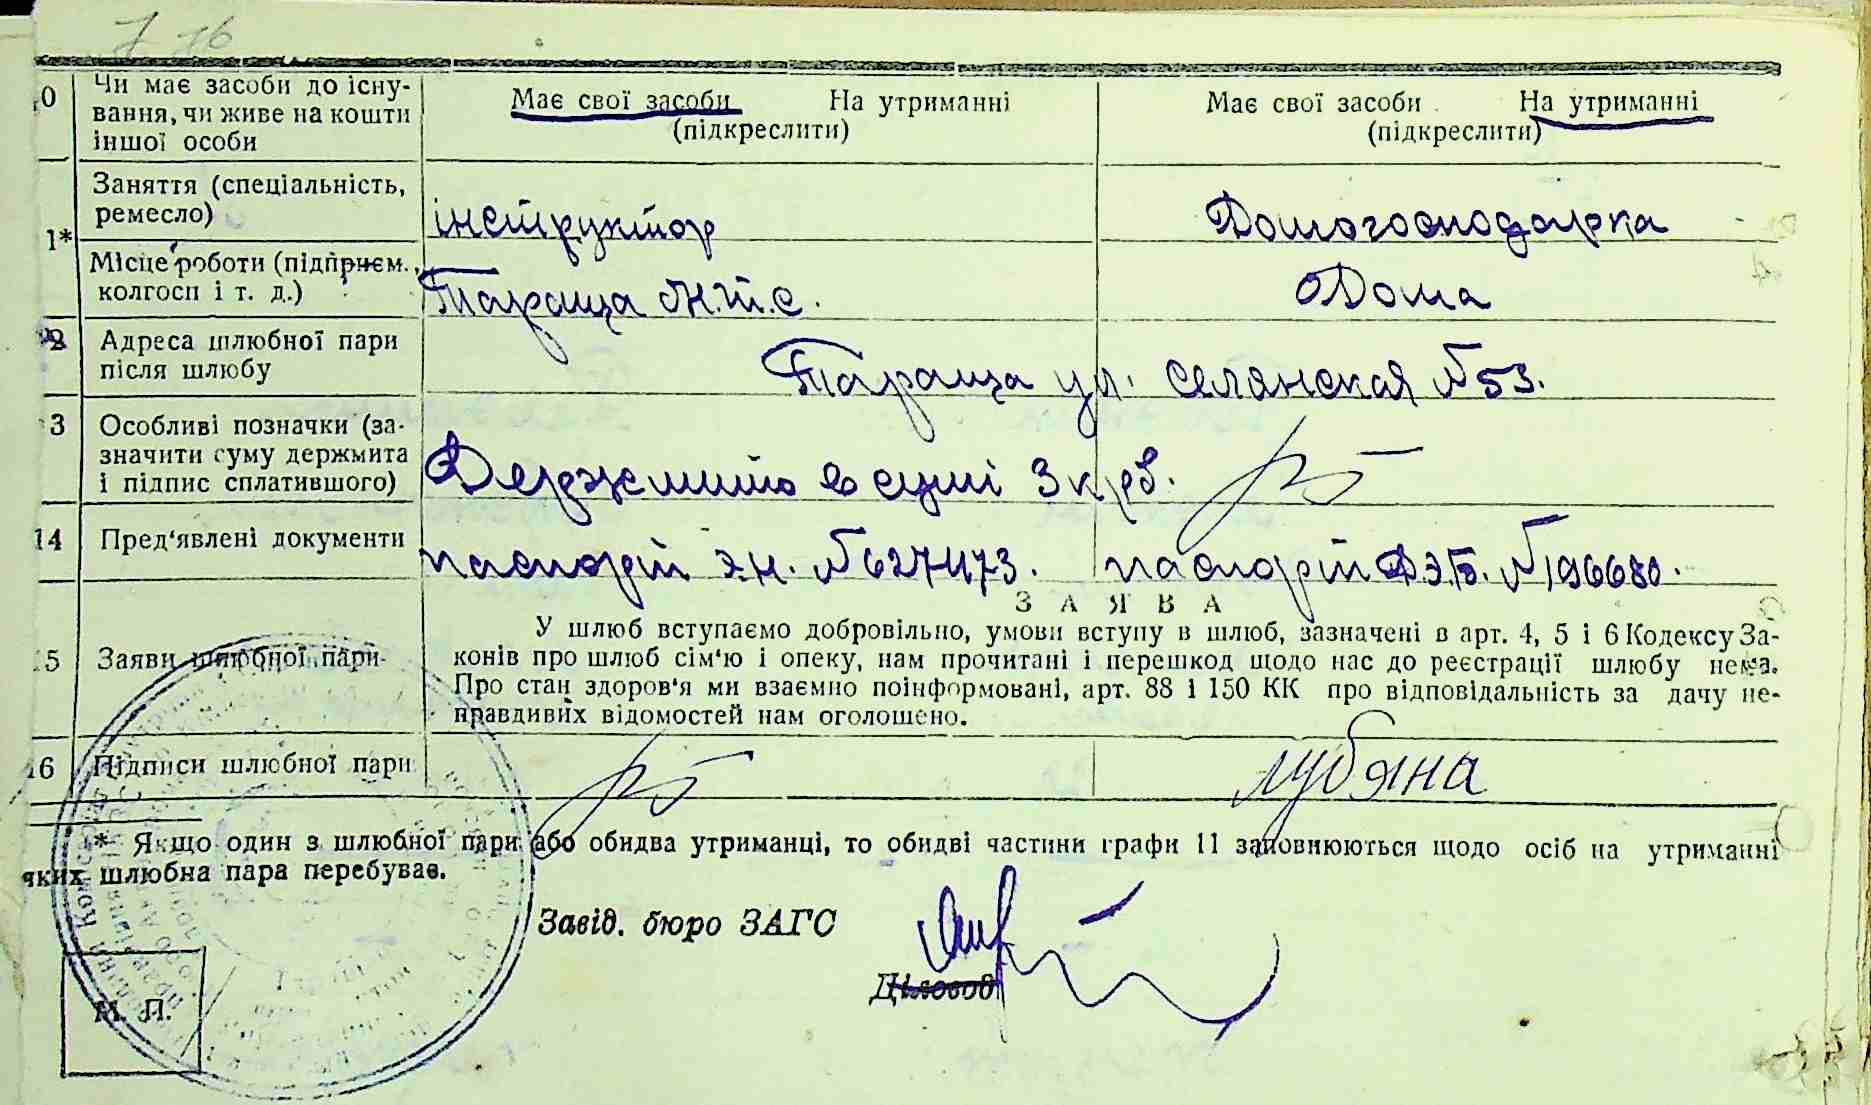 7 16
10 Чи має засоби до існу-
вання, чи живе на кошти
іншої особи
Має свої засоби На утриманні
(підкреслити)
Має свої засоби На утриманні
(підкреслити)
11* Заняття (спеціальність,
ремесло)
інструктор
Домогосподарка
Місце роботи (підприєм.,
колгосп і т. д.)
Тараща М.Т.С.
Дома
2 Адреса шлюбної пари
після шлюбу
Тараща ул. Селянская №53.
3 Особливі позначки (за-
значити суму держмита
і підпис сплатившого)
Держмито в сумі 3 крб.
14 Пред'явлені документи
паспорт э.н. №627473.
паспорт №196680.
З А Я В А
15 Заяви шлюбної пари
У шлюб вступаємо добровільно, умови вступу в шлюб, зазначені в арт. 4, 5 і 6 Кодексу За-
конів про шлюб сім'ю і опеку, нам прочитані і перешкод щодо нас до реєстрації шлюбу нема.
Про стан здоров'я ми взаємно поінформовані, арт. 88 і 150 КК про відповідальність за дачу не-
правдивих відомостей нам оголошено.
16 Підписи шлюбної пари
Лубяна
* Якщо один з шлюбної пари або обидва утриманці, то обидві частини графи 11 заповнюються щодо осіб на утриманні
яких шлюбна пара перебуває.
Завід. бюро ЗАГС
Діловод
М. П.